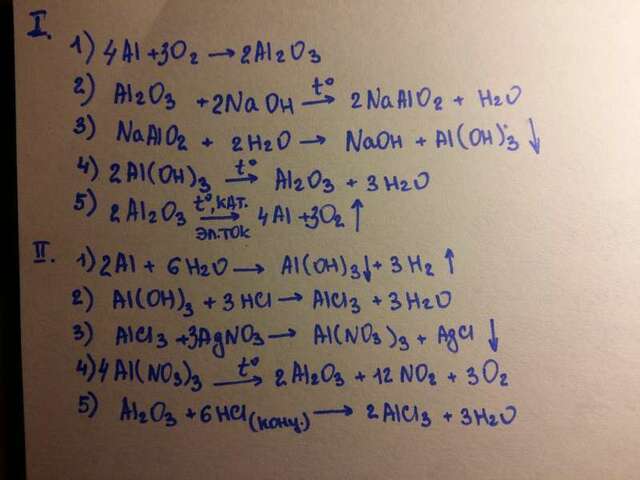 I.
1) 4Al + 3O₂ → 2Al₂O₃
2) Al₂O₃ + 2NaOH t°→ 2NaAlO₂ + H₂O
3) NaAlO₂ + 2H₂O → NaOH + Al(OH)₃ ↓
4) 2Al(OH)₃ t°→ Al₂O₃ + 3H₂O
5) 2Al₂O₃ t°, кат. → эл.ток 4Al + 3O₂ ↑
II.
1) 2Al + 6H₂O → Al(OH)₃↓ + 3H₂ ↑
2) Al(OH)₃ + 3HCl → AlCl₃ + 3H₂O
3) AlCl₃ + 3AgNO₃ → Al(NO₃)₃ + AgCl ↓
4) 4Al(NO₃)₃ t°→ 2Al₂O₃ + 12NO₂ + 3O₂
5) Al₂O₃ + 6HCl (конц.) → 2AlCl₃ + 3H₂O